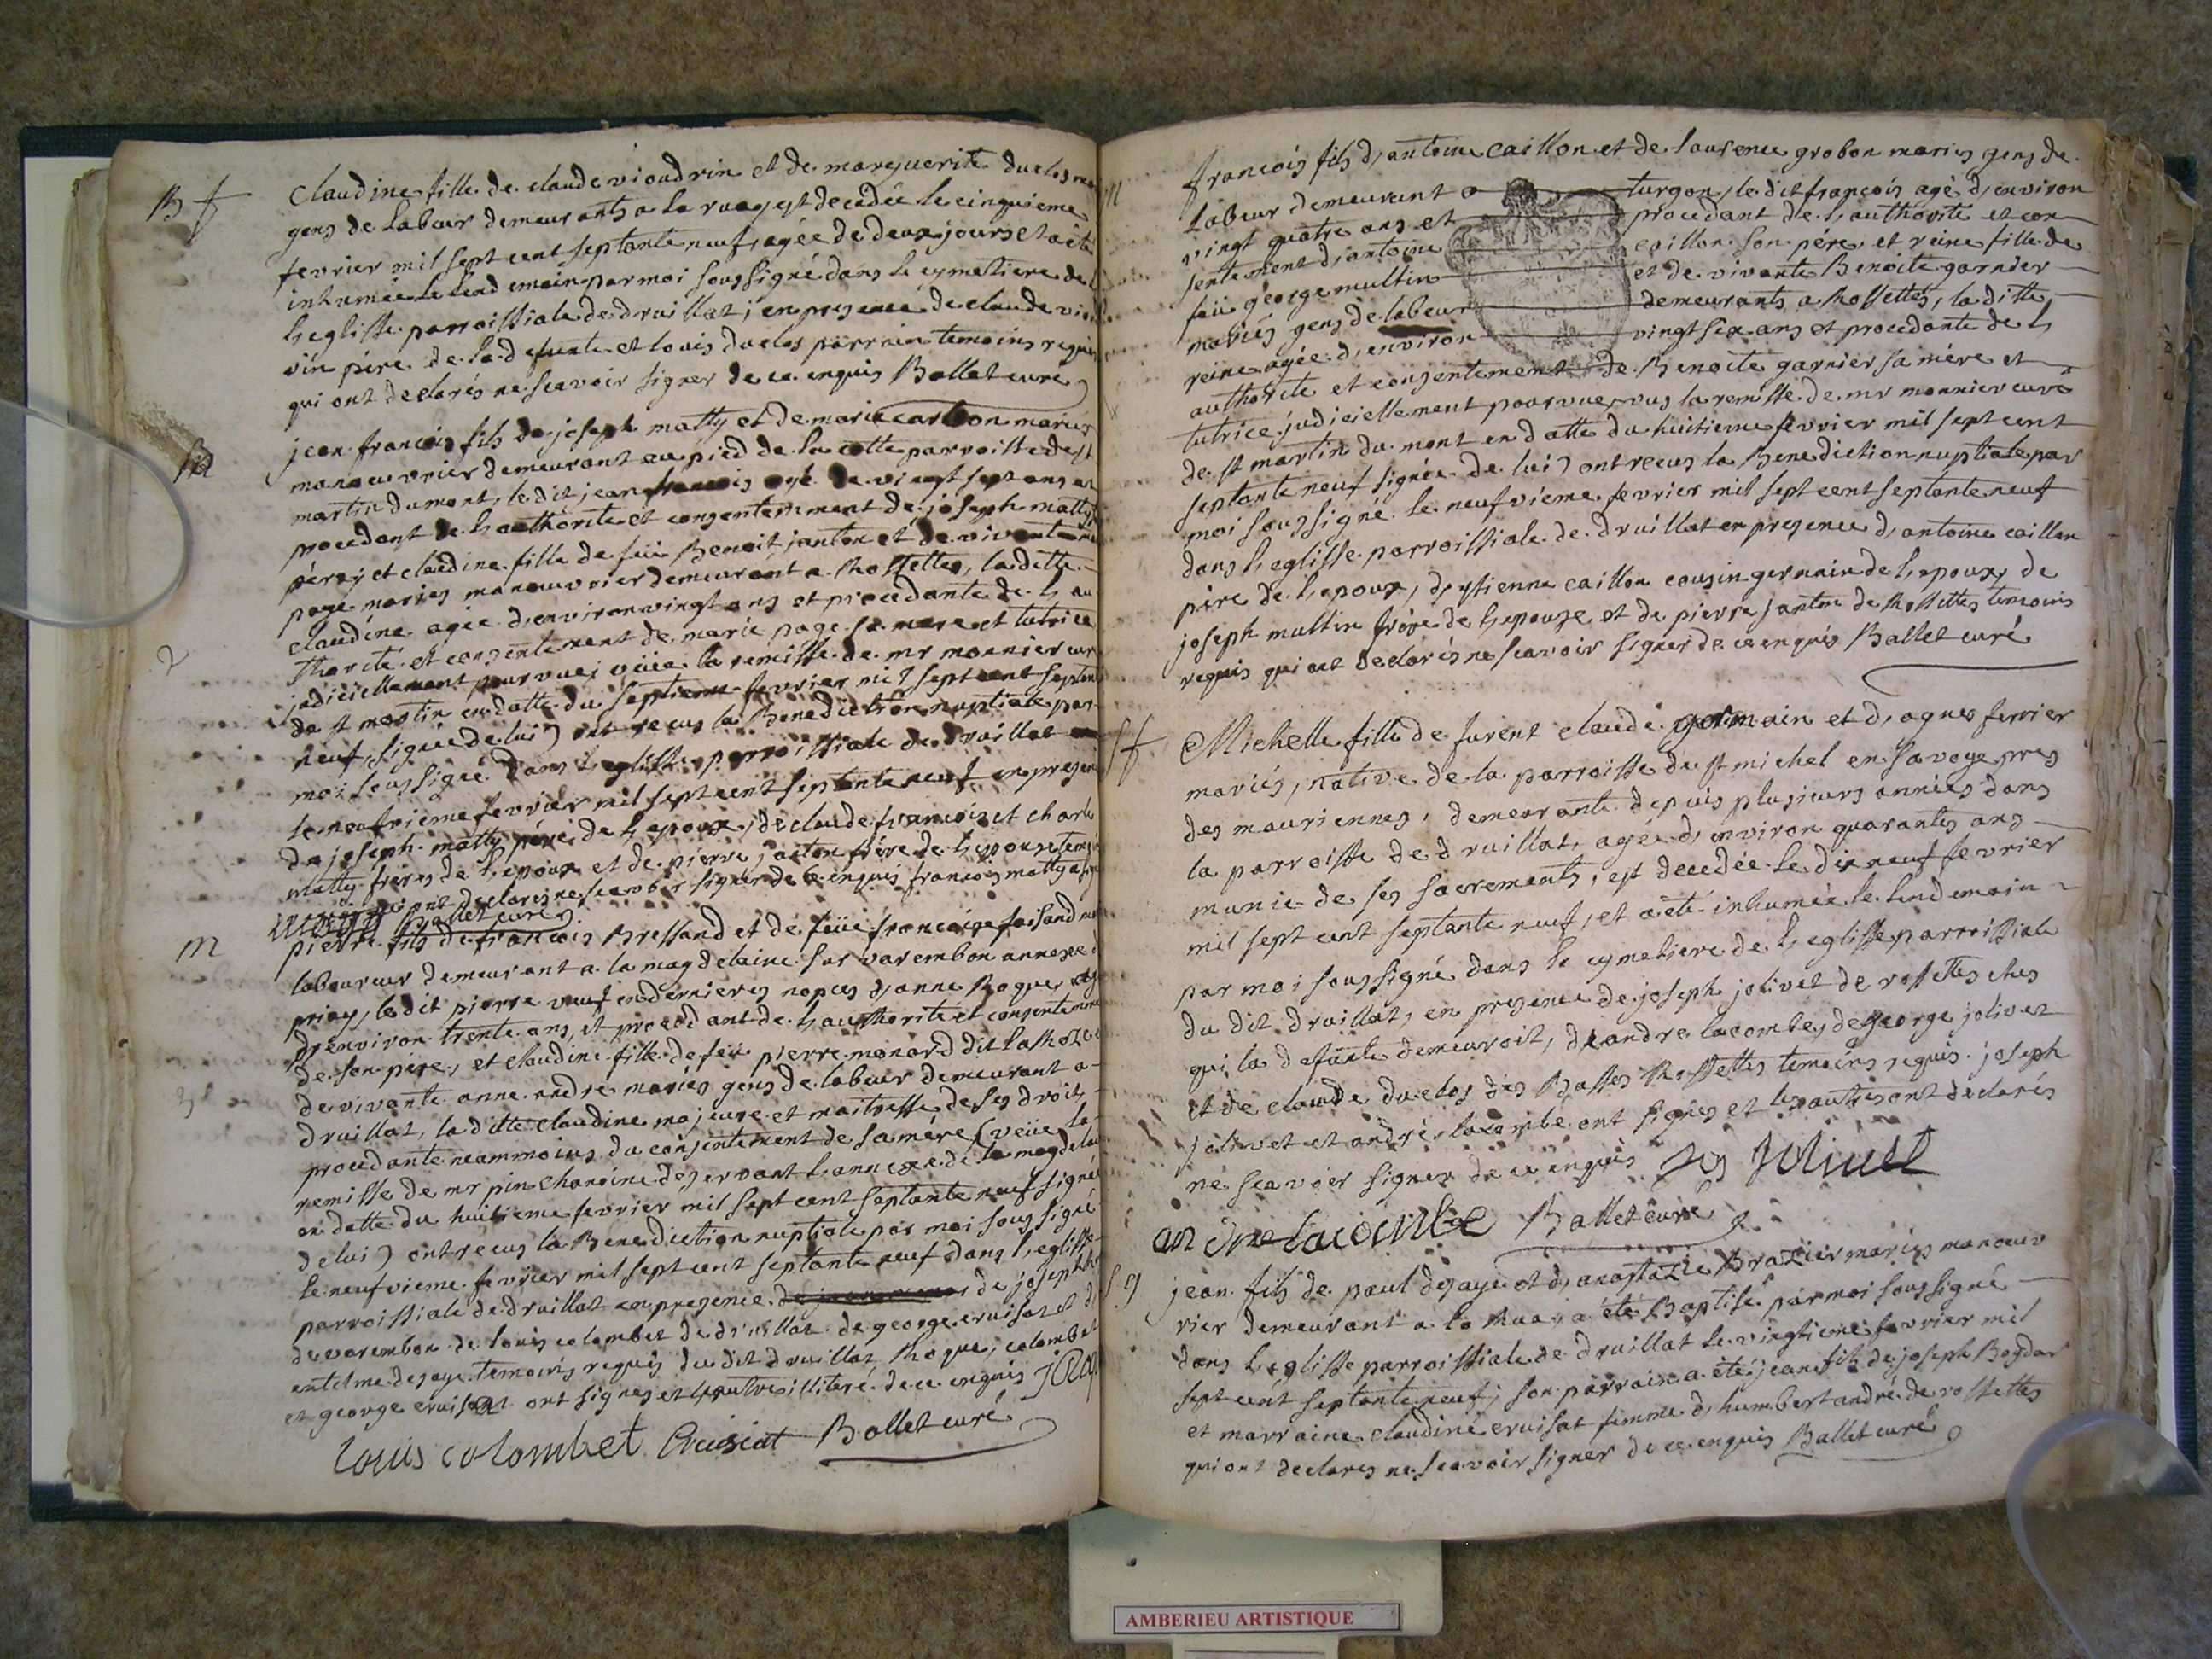 B f
Claudine fille de claude vioudrin et de marguerite duclos
gens de labeur demeurants a la ruaz est decedée le cinquieme
fevrier mil sept cent septante neuf, agée de deux jours et a été
inhumée le lendemain par moi soussigné dans le cymetiere de
l'eglisse parroissiale de druillat, en presence de claude
vin pére de la defunte et louis duclos parrain temoins requis
qui ont declarés ne scavoir signer de ce enquis Ballet curé
m
jean francois fils de joseph matty et de marie carbon mariés
manouvrier demeurant au pied de la cotte parroisse de st
martin du mont, le dit jean francois agé de vingt sept ans et
procedant de l'authorité et consentement de joseph matty
pére, et claudine fille de feüe Benoit janton et de vivante
page mariés manouvrier demeurant a Rossettes, la ditte
claudine agée d'environ vingt ans et procedante de l'au
thorité et consentement de marie page sa mere et tutrice
judiciellement pourvue, vüe la remisse de mr monnier curé
2
de st martin en datte du septieme fevrier mil sept cent septante
neuf signée de lui) ont recus la Benediction nuptiale par
moi soussigné dans l'eglisse parroissiale de druillat
le neufvieme fevrier mil sept cent septante neuf en presence
de joseph matty pére de l'epoux, de claude francois et charle
matty fréres de l'epoux et de pierre janton frére de l'epouse
qui ont declarés ne scavoir signer de ce enquis francois matty
Ballet curé
m
pierre fils de francois Bressand et de feüe francoise faisand
laboureur demeurant a la magdelaine sur varembon annexe
priay, le dit pierre veuf en dernieres nopces d'anne Roque, agé
d'environ trente ans, et procedant de l'authorité et consentement
de son pére, et claudine fille de feu pierre monard dit
3
de vivante anne andre mariés gens de labeur demeurant a
druillat, la ditte claudine majeure et maitresse de ses droits
procedante neammoins du consentement de sa mére (veüe la
remisse de mr pin chanoine deservant l'annexe de la magdelai
en datte du huitieme fevrier mil sept cent septante neuf signée
de lui) ont recus la Benediction nuptiale par moi soussigné
le neufvieme fevrier mil sept cent septante neuf dans l'eglisse
parroissiale de druillat en presence de joseph
de varembon de louis colombet de druillat de george cruisat et d
entelme desaye temoins requis du dit druillat, Roque, colombet
et george cruisat ont signés et l'autre illiteré de ce enquis
louis colombet Cruisiat Ballet curé
m
francois fils d'antoine caillon et de laurence grobon mariés gens de
labeur demeurant a turgon, le dit francois agé d'environ
vingt quatre ans et procedant de l'authorité et con
sentement d'antoine caillon son pére, et reine fille de
feüe george multin et de vivante Benoite garnier
mariés gens de labeur demeurants a Rossettes, la ditte
reine agée d'environ vingt six ans et procedante de l'
authorité et consentement de Benoite garnier sa mére et
tutrice judiciellement pourvue, vus la remisse de mr monnier curé
de st martin du mont en datte du huitieme fevrier mil sept cent
septante neuf signée de lui) ont recus la Benediction nuptiale par
moi soussigné le neufvieme fevrier mil sept cent septante neuf
dans l'eglisse parroissiale de druillat en presence d'antoine caillon
pére de l'epoux, d'estienne caillon cousin germain de l'epoux, de
joseph multin frére de l'epouse et de pierre janton de Rossettes temoins
requis qui ont declarés ne scavoir signer de ce enquis Ballet curé
S f
Michelle fille de furent claude germain et d'agnes ferrier
mariés, native de la parroisse de st michel en savoye pres
des mauriennes, demeurante depuis plusieurs années dans
la parroisse de druillat, agée d'environ quarantes ans
munie de ses sacrements, est decedée le dix neuf fevrier
mil sept cent septante neuf, et a été inhumée le lendemain
par moi soussigné dans le cymetiere de l'eglisse parroissiale
du dit druillat, en presence de joseph jolivet de rossettes ches
qui la defunte demeuroit, d'andre lacombe, de george jolivet
et de claude duclos des Basses Rossettes temoins requis. joseph
jolivet et andré lacombe ont signés et les autres ont declarés
ne scavoir signer de ce enquis Jos Jolivet
andre lacombe Ballet curé
jean fils de paul desaye et d'anastazie Brazier mariés manouv
rier demeurant a la Ruaz, a été Baptisé par moi soussigné
dans l'eglisse parroissiale de druillat le vingtieme fevrier mil
sept cent septante neuf, son parrain a été jean fils de joseph Bogdar
et marraine claudine cruisat femme d'humbert andré de rossettes
qui ont declarés ne scavoir signer de ce enquis Ballet curé
AMBERIEU ARTISTIQUE